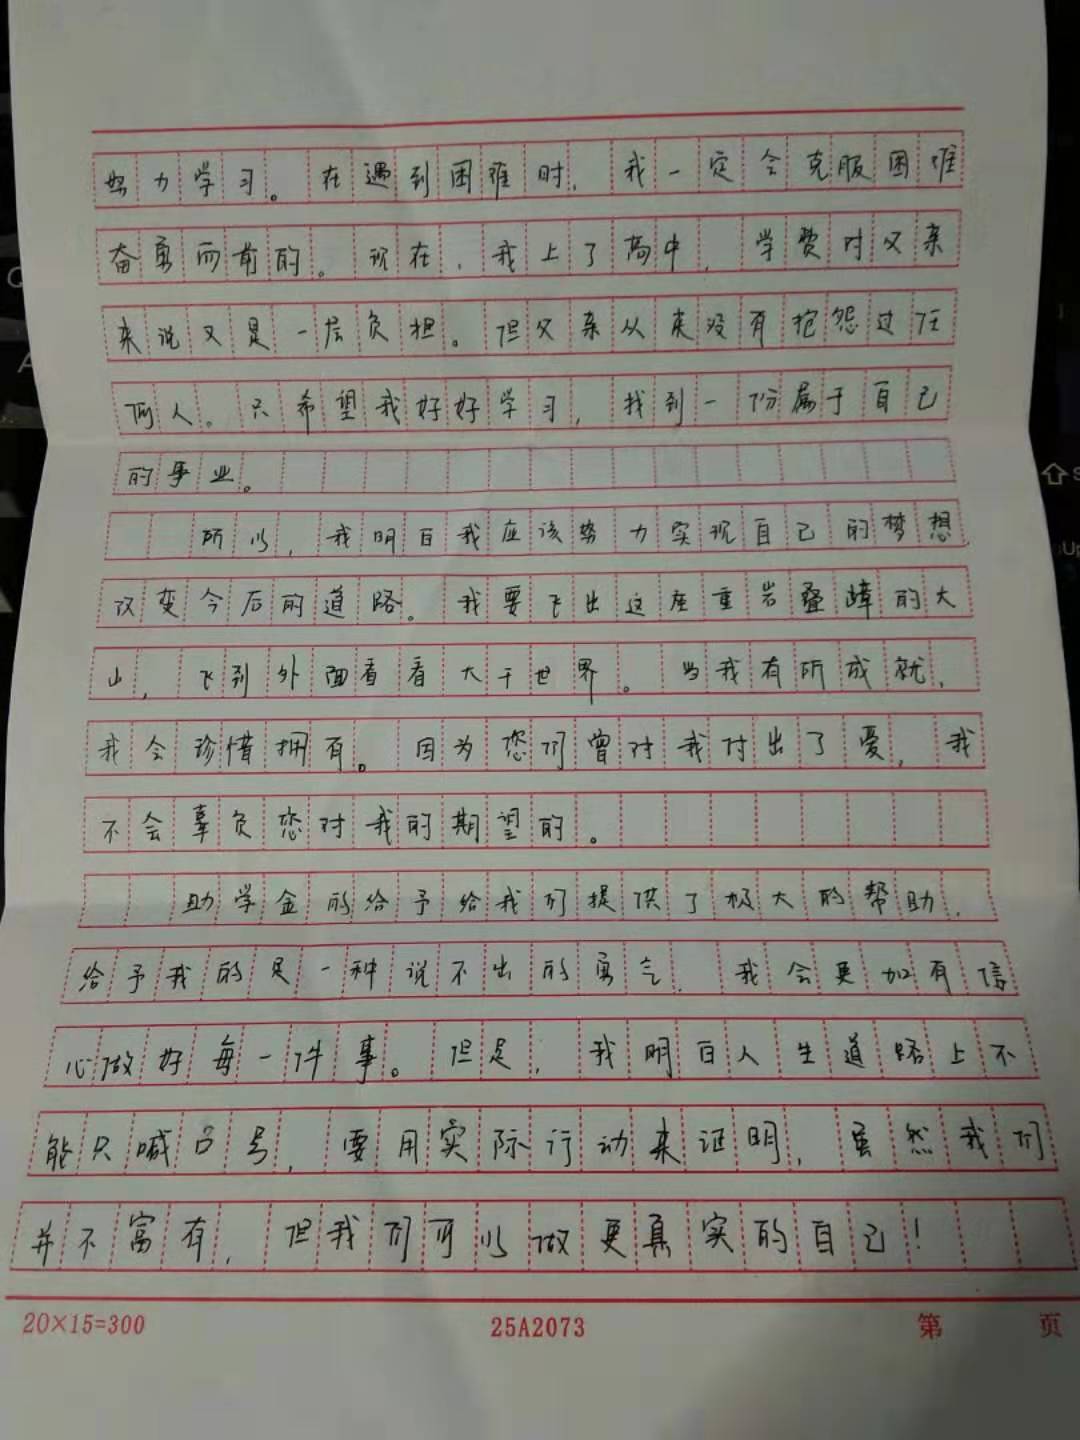 努力学习。在遇到困难时，我一定会克服困难
奋勇而前的。现在，我上了高中，学费对父亲
来说又是一层负担。但父亲从来没有抱怨过任
何人。只希望我好好学习，找到一份属于自己
的事业。
所以，我明白我应该努力实现自己的梦想，
改变今后的道路。我要飞出这座重岩叠嶂的大
山，飞到外面看看大千世界。当我有所成就，
我会珍惜拥有。因为您们曾对我付出了爱，我
不会辜负您对我的期望的。
助学金的给予给我们提供了极大的帮助，
给予我的是一种说不出的勇气，我会更加有信
心做好每一件事。但是，我明白人生道路上不
能只喊口号，要用实际行动来证明，虽然我们
并不富有，但我们可以做更真实的自己！
20×15=300
25A2073
第 页